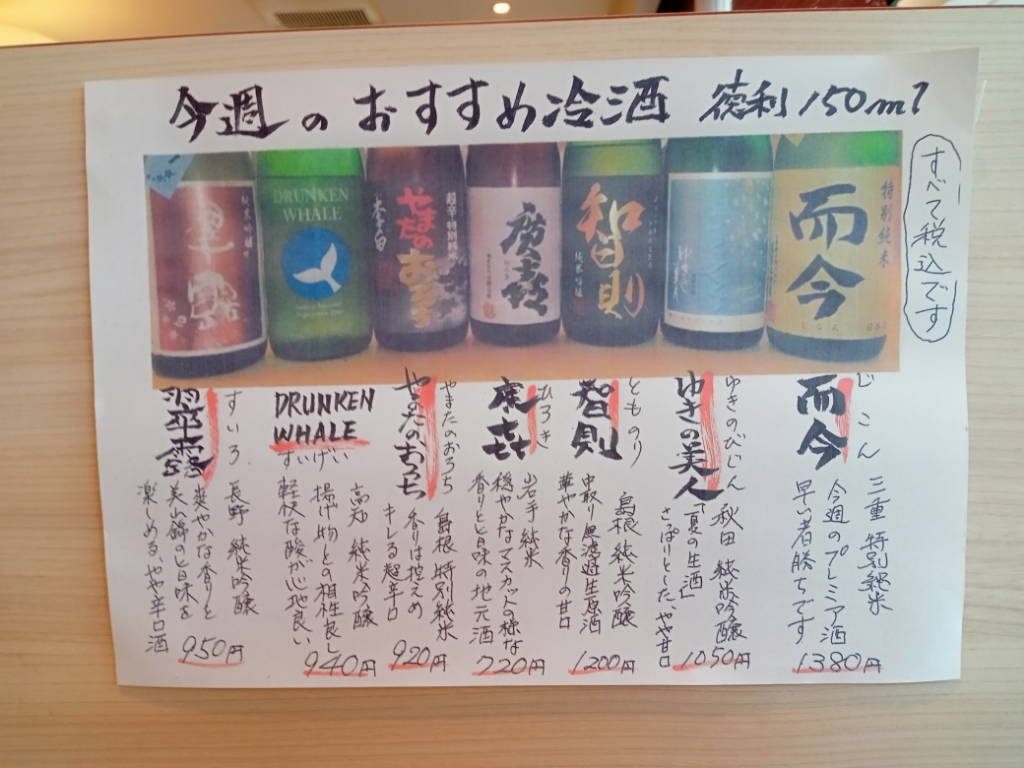 今週のおすすめ冷酒 徳利150ml
すべて税込です
特別純米
而今
智則
純米吟醸
廣喜
超辛特別純米
やまたのおろち
DRUNKEN
WHALE
純米吟醸
じこん
而今
三重 特別純米
今週のプレミア酒
早い者勝ちです
1380円
ゆきのびじん
ゆきの美人
秋田 純米吟醸
「夏の生酒」
さっぱりとした、やや甘口
1050円
とものり
智則
島根 純米吟醸
中取り無濾過生原酒
華やかな香りの甘口
1200円
ひろき
廣喜
岩手 純米
穏やかなマスカットの様な
香りと旨味の地元酒
720円
やまたのおろち
やまたのおろち
島根 特別純米
香りは控えめ
キレる超辛口
920円
DRUNKEN
WHALE
すいげい
高知 純米吟醸
揚げ物との相性良し
軽快な酸が心地良い
940円
すいろ
翠露
長野 純米吟醸
爽やかな香りと
美山錦の旨味を
楽しめるやや辛口酒
950円